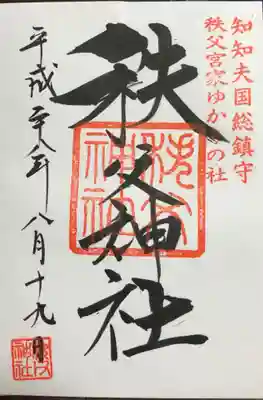 知知夫国総鎮守
秩父宮家ゆかりの社
秩父神社
秩父神社
平成二十八年八月十九日